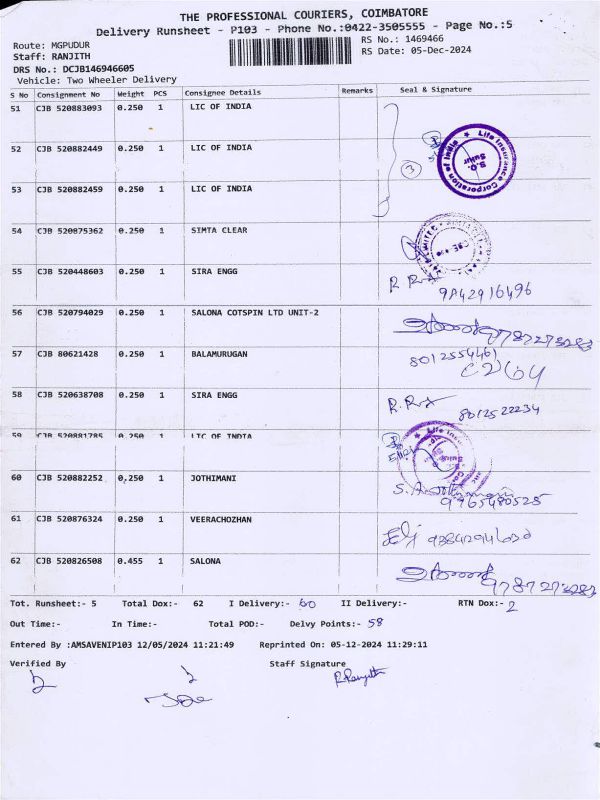 THE PROFESSIONAL COURIERS, COIMBATORE
Delivery Runsheet - P103 - Phone No.:0422-3505555 - Page No.:5
Route: MGPUDUR
RS No.: 1469466
Staff: RANJITH
RS Date: 05-Dec-2024
DRS No.: DCJB146946605
Vehicle: Two Wheeler Delivery
S No Consignment No Weight PCS Consignee Details Remarks Seal & Signature
51 CJB 520883093 0.250 1 LIC OF INDIA
52 CJB 520882449 0.250 1 LIC OF INDIA
3
Life Insurance Corporation of India
S.O.
Sulur
53 CJB 520882459 0.250 1 LIC OF INDIA
54 CJB 520875362 0.250 1 SIMTA CLEAR
55 CJB 520448603 0.250 1 SIRA ENGG
9842916496
56 CJB 520794029 0.250 1 SALONA COTSPIN LTD UNIT-2
9787273283
57 CJB 80621428 0.250 1 BALAMURUGAN
8012554461
58 CJB 520638708 0.250 1 SIRA ENGG
8012522234
59 CJB 520881785 0.250 1 LIC OF INDIA
60 CJB 520882252 0,250 1 JOTHIMANI
9965480525
61 CJB 520876324 0.250 1 VEERACHOZHAN
9384294630
62 CJB 520826508 0.455 1 SALONA
9787273283
Tot. Runsheet:- 5 Total Dox:- 62 I Delivery:- 60 II Delivery:- RTN Dox:- 2
Out Time:- In Time:- Total POD:- Delvy Points:- 58
Entered By :AMSAVENIP103 12/05/2024 11:21:49 Reprinted On: 05-12-2024 11:29:11
Verified By Staff Signature
R.Ranjith